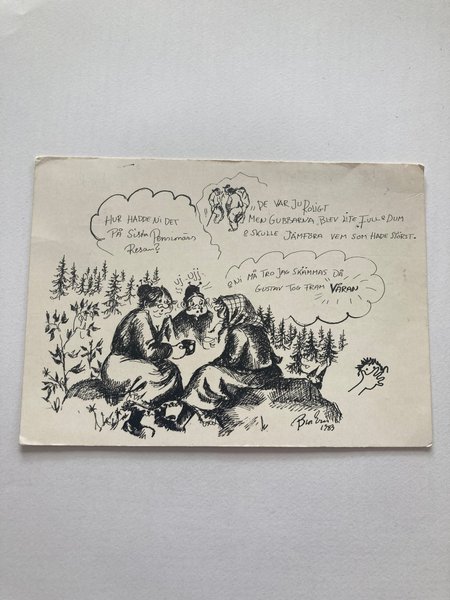 HUR HADDE NI DET
PÅ SISTA PENSIONÄRS
RESAN?
"DE VAR JU ROLIGT
MEN GUBBARNA BLEV LITE FULL & DUM
& SKULLE JÄMFÖRA VEM SOM HADE STÖRST.
UJ UJJ
& NI MÅ TRO JAG SKÄMMAS DÅ,
GUSTAV TOG FRAM "VÅRAN"
1983